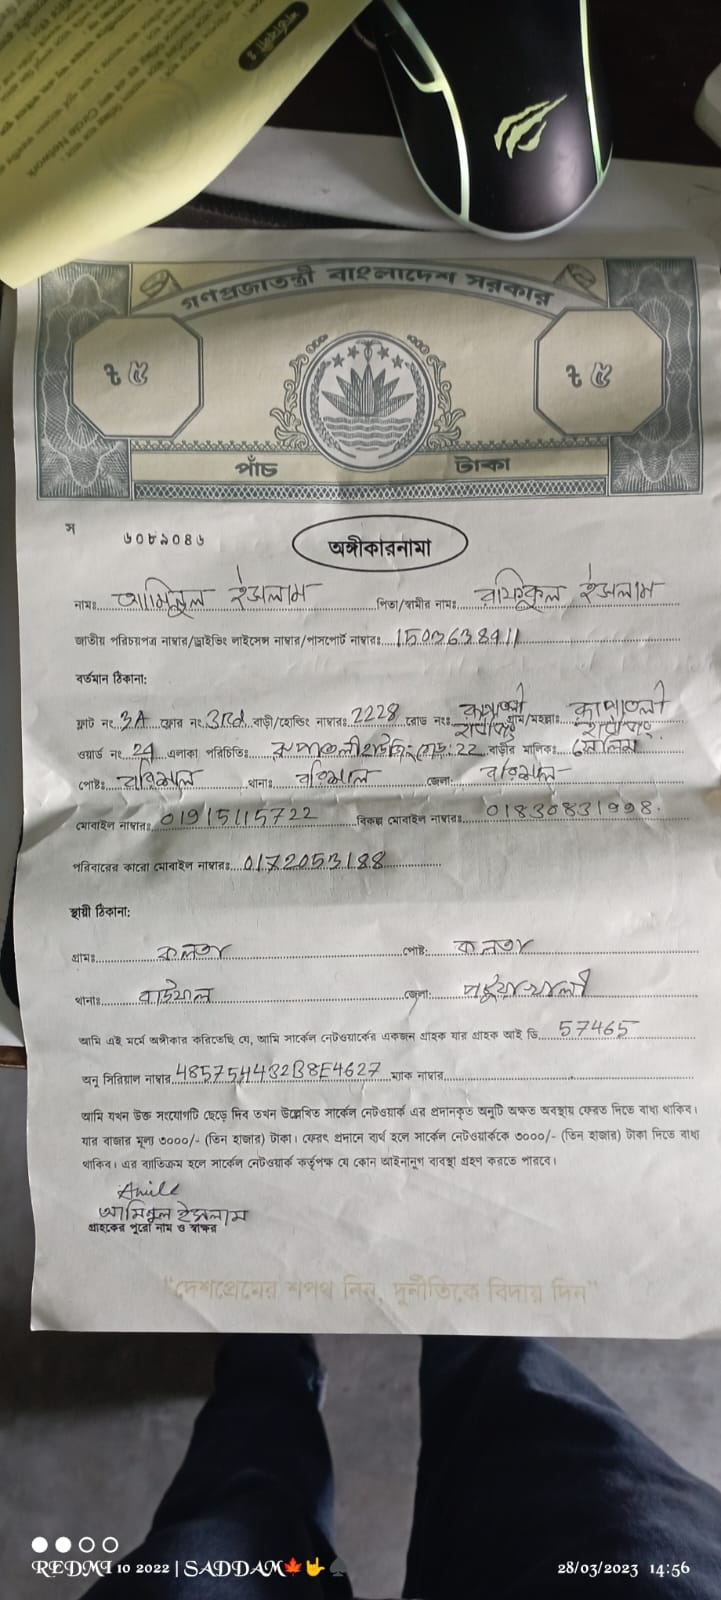 Circle Network
গণপ্রজাতন্ত্রী বাংলাদেশ সরকার
৳ ৫ ৳ ৫
পাঁচ টাকা
স ৬০৮৯০৪৬
অঙ্গীকারনামা
নামঃ আমিনুল ইসলাম পিতা/স্বামীর নামঃ রফিকুল ইসলাম
জাতীয় পরিচয়পত্র নাম্বার/ড্রাইভিং লাইসেন্স নাম্বার/পাসপোর্ট নাম্বারঃ
বর্তমান ঠিকানা:
ফ্লাট নং 3A ফ্লোর নং 3Rd বাড়ী/হোল্ডিং নাম্বারঃ 2228 রোড নংঃ গ্রাম/মহল্লাঃ
ওয়ার্ড নং 24 এলাকা পরিচিতিঃ রোড: 22 বাড়ীর মালিকঃ সেলিম
পোষ্টঃ বরিশাল থানাঃ বরিশাল জেলাঃ বরিশাল
মোবাইল নাম্বারঃ 01915115722 বিকল্প মোবাইল নাম্বারঃ
পরিবারের কারো মোবাইল নাম্বারঃ 0172053188
স্থায়ী ঠিকানা:
গ্রামঃ কনতা পোষ্ট: কনতা
থানাঃ বাউফল জেলা: পটুয়াখালী
আমি এই মর্মে অঙ্গীকার করিতেছি যে, আমি সার্কেল নেটওয়ার্কের একজন গ্রাহক যার গ্রাহক আই ডি 57465
অনু সিরিয়াল নাম্বার 485754432B8E4627 ম্যাক নাম্বার
আমি যখন উক্ত সংযোগটি ছেড়ে দিব তখন উল্লেখিত সার্কেল নেটওয়ার্ক এর প্রদানকৃত অনুটি অক্ষত অবস্থায় ফেরত দিতে বাধ্য থাকিব।
যার বাজার মূল্য ৩০০০/- (তিন হাজার) টাকা। ফেরৎ প্রদানে ব্যর্থ হলে সার্কেল নেটওয়ার্ককে ৩০০০/- (তিন হাজার) টাকা দিতে বাধ্য
থাকিব। এর ব্যতিক্রম হলে সার্কেল নেটওয়ার্ক কর্তৃপক্ষ যে কোন আইনানুগ ব্যবস্থা গ্রহণ করতে পারবে।
আমিনুল ইসলাম
গ্রাহকের পুরো নাম ও স্বাক্ষর
"দেশপ্রেমের শপথ নিন, দুর্নীতিকে বিদায় দিন"
REDMI 10 2022 | SADDAM🍁🤟♠️ 28/03/2023 14:56